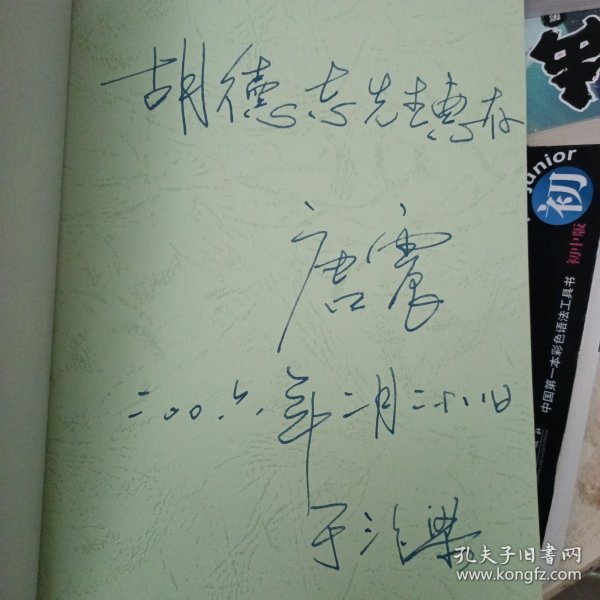 胡德志先生惠存
唐震
二00六年二月二十八日
于
初
junior
初中版
中国第一本彩色语法工具书
孔夫子旧书网
www.kongfz.com